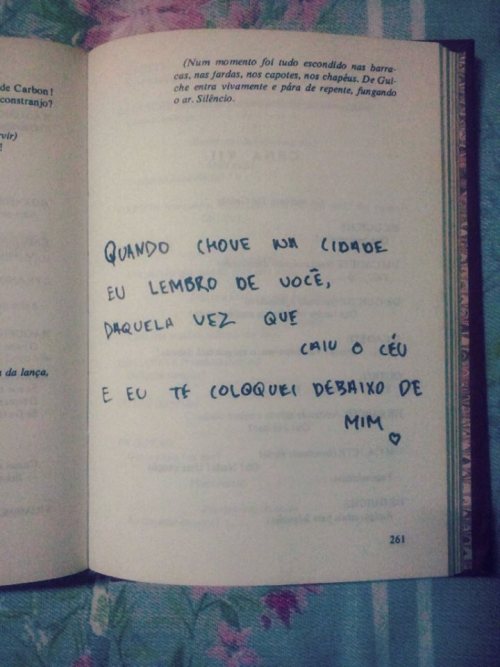 de Carbon!
constranjo?
vir)
!
a da lança,
(Num momento foi tudo escondido nas barra-
cas, nas fardas, nos capotes, nos chapéus. De Gui-
che entra vivamente e pára de repente, fungando
o ar. Silêncio.
QUANDO CHOVE NA CIDADE
EU LEMBRO DE VOCÊ,
DAQUELA VEZ QUE
CAIU O CÉU
E EU TE COLOQUEI DEBAIXO DE
MIM
261